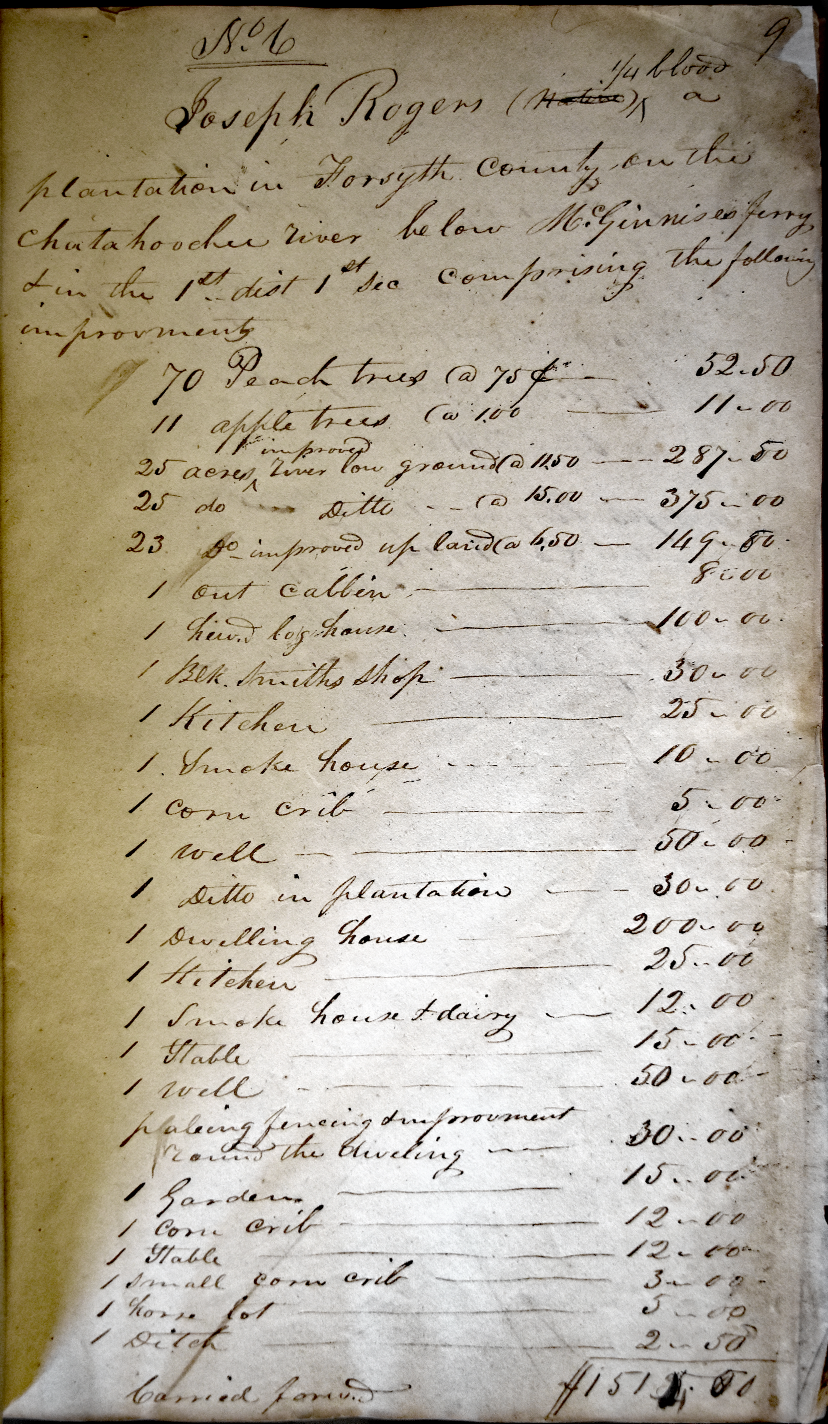 No. 6
9
1/4 blood
Joseph Rogers (Native) a
plantation in Forsyth county on the
chatahoochee river below McGinnises ferry
& in the 1st dist 1st sec comprising the following
improvments
70 Peach trees @ 75¢ 52.50
11 apple trees @ 1.00 11.00
improved
25 acres river low ground @ 11.50 287.50
25 do Ditto @ 15.00 375.00
23 Do improved up land @ 6.50 149.50
1 out cabbin 8.00
1 hew.d log house 100.00
1 Blk. Smiths shop 30.00
1 Kitchen 25.00
1 Smoke house 10.00
1 corn crib 5.00
1 well 50.00
1 Ditto in plantation 30.00
1 Dwelling house 200.00
1 Kitchen 25.00
1 Smoke house & dairy 12.00
1 Stable 15.00
1 well 50.00
paleing fencing & improvment
round the dweling 30.00
1 Garden 15.00
1 corn crib 12.00
1 Stable 12.00
1 small corn crib 3.00
1 horse lot 5.00
1 Ditch 2.50
Carried forw.d